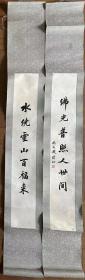 佛光普照人世间
水绕灵山百福来